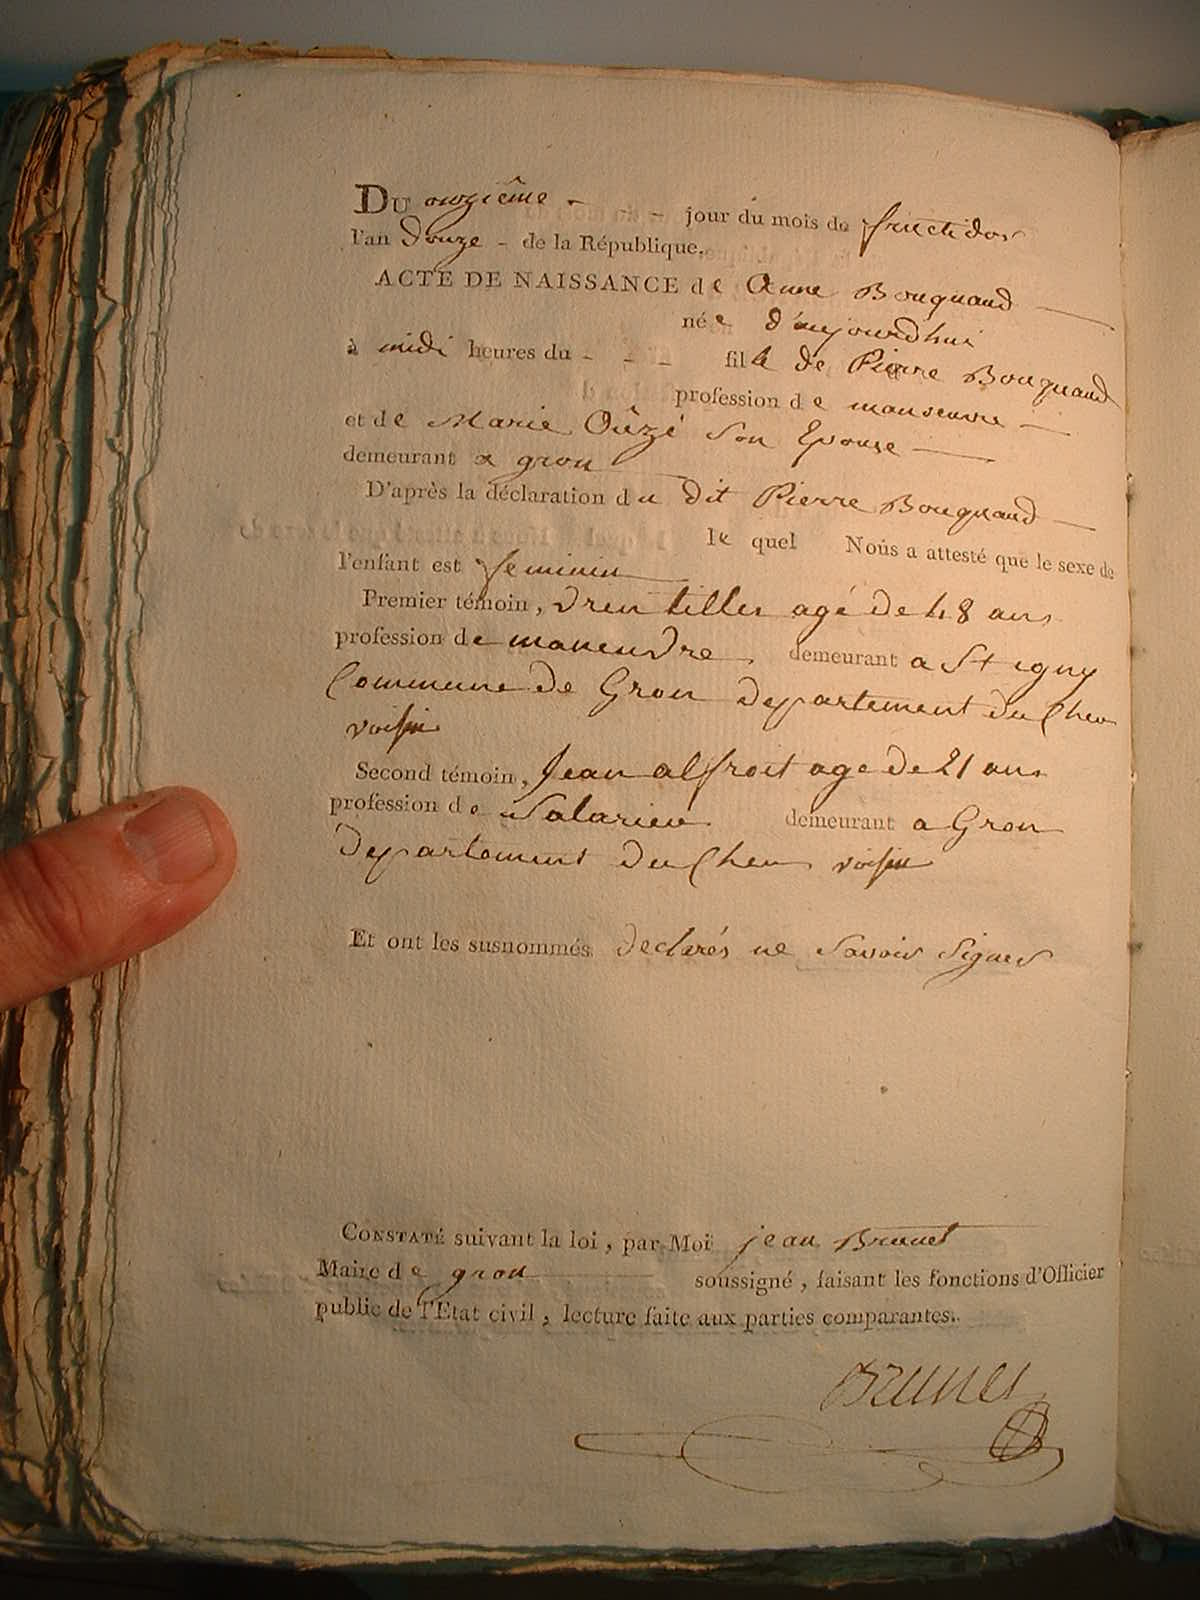 DU onzième - - jour du mois de fructidor
l'an Douze - de la République.
ACTE DE NAISSANCE de Anne Bougnaud
née d'aujourdhui
à midi heures du - - - fille de Pierre Bougnaud
profession de manoeuvre
et de Marie Oûzé Son Epouse
demeurant a gron
D'après la déclaration du dit Pierre Bougnaud
le quel Nous a attesté que le sexe de
l'enfant est feminin
Premier témoin, tiller agé de 48 ans
profession de demeurant a St igny
Commune de Gron Departement du Cher
voisin
Second témoin, Jean alfroit age de 21 ans
profession de Salarier demeurant a Gron
Departement du Cher voisin
Et ont les susnommés declarés ne Savoir Signer
CONSTATÉ suivant la loi, par Moi jean Brunet
Maire de gron soussigné, faisant les fonctions d'Officier
public de l'Etat civil, lecture faite aux parties comparantes.
Brunet